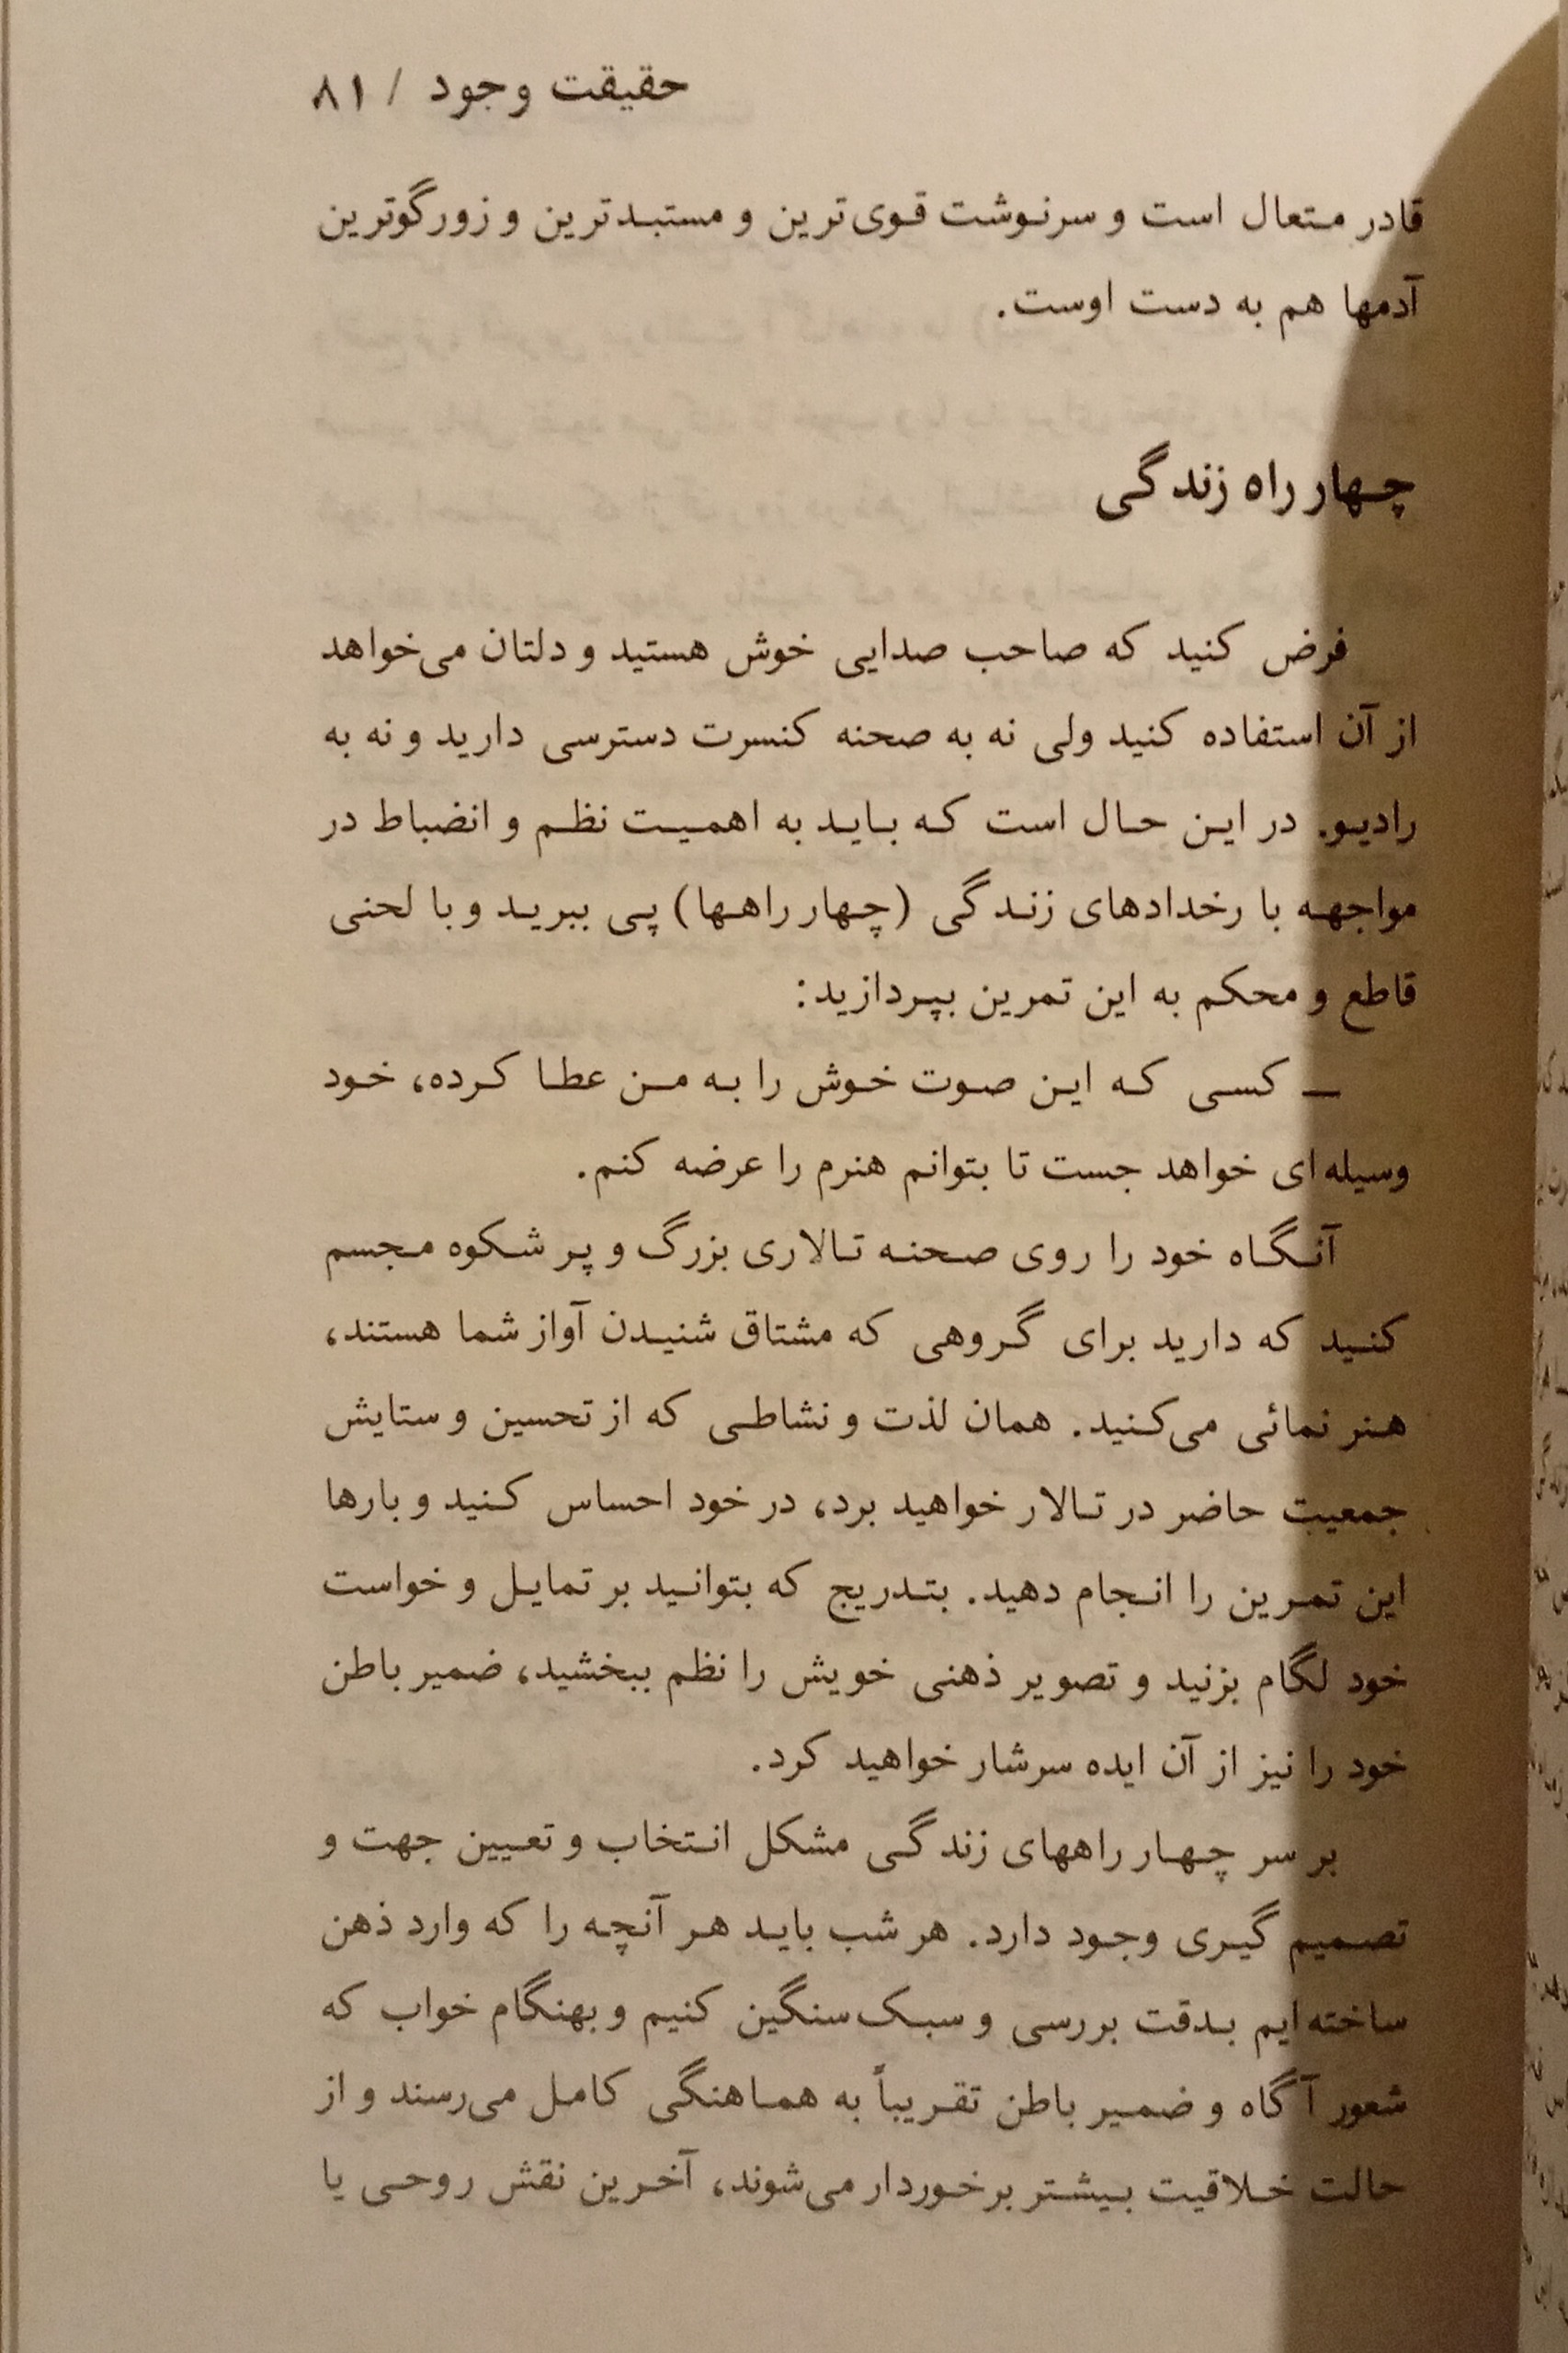 حقیقت وجود / ۸۱
قادر متعال است و سرنوشت قوی‌ترین و مستبدترین و زورگوترین
آدمها هم به دست اوست.
چهار راه زندگی
فرض کنید که صاحب صدایی خوش هستید و دلتان می‌خواهد
از آن استفاده کنید ولی نه به صحنه کنسرت دسترسی دارید و نه به
رادیو. در این حال است که باید به اهمیت نظم و انضباط در
مواجهه با رخدادهای زندگی (چهار راهها) پی ببرید و با لحنی
قاطع و محکم به این تمرین بپردازید:
— کسی که این صوت خوش را به من عطا کرده، خود
وسیله‌ای خواهد جست تا بتوانم هنرم را عرضه کنم.
آنگاه خود را روی صحنه تالاری بزرگ و پر شکوه مجسم
کنید که دارید برای گروهی که مشتاق شنیدن آواز شما هستند،
هنر نمائی می‌کنید. همان لذت و نشاطی که از تحسین و ستایش
جمعیت حاضر در تالار خواهید برد، در خود احساس کنید و بارها
این تمرین را انجام دهید. بتدریج که بتوانید بر تمایل و خواست
خود لگام بزنید و تصویر ذهنی خویش را نظم ببخشید، ضمیر باطن
خود را نیز از آن ایده سرشار خواهید کرد.
بر سر چهار راههای زندگی مشکل انتخاب و تعیین جهت و
تصمیم گیری وجود دارد. هر شب باید هر آنچه را که وارد ذهن
ساخته‌ایم بدقت بررسی و سبک سنگین کنیم و بهنگام خواب که
شعور آگاه و ضمیر باطن تقریباً به هماهنگی کامل می‌رسند و از
حالت خلاقیت بیشتر برخوردار می‌شوند، آخرین نقش روحی یا